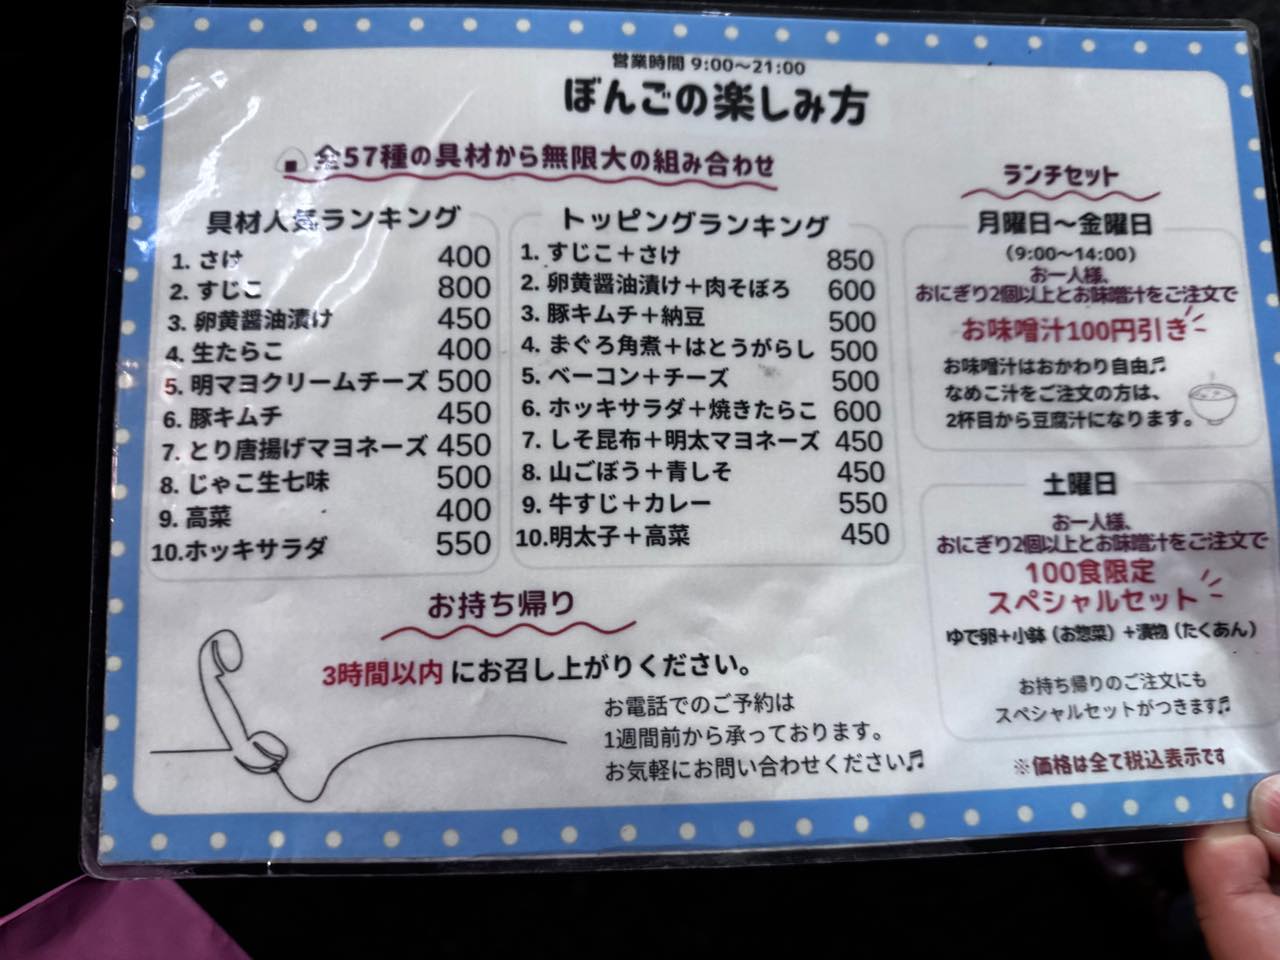 営業時間 9:00〜21:00
ぼんごの楽しみ方
全57種の具材から無限大の組み合わせ
具材人気ランキング
1. さけ 400
2. すじこ 800
3. 卵黄醤油漬け 450
4. 生たらこ 400
5. 明マヨクリームチーズ 500
6. 豚キムチ 450
7. とり唐揚げマヨネーズ 450
8. じゃこ生七味 500
9. 高菜 400
10.ホッキサラダ 550
トッピングランキング
1. すじこ＋さけ 850
2. 卵黄醤油漬け＋肉そぼろ 600
3. 豚キムチ＋納豆 500
4. まぐろ角煮＋はとうがらし 500
5. ベーコン＋チーズ 500
6. ホッキサラダ＋焼きたらこ 600
7. しそ昆布＋明太マヨネーズ 450
8. 山ごぼう＋青しそ 450
9. 牛すじ＋カレー 550
10.明太子＋高菜 450
ランチセット
月曜日〜金曜日
（9:00〜14:00）
お一人様、
おにぎり2個以上とお味噌汁をご注文で
お味噌汁100円引き
お味噌汁はおかわり自由♬
なめこ汁をご注文の方は、
2杯目から豆腐汁になります。
土曜日
お一人様、
おにぎり2個以上とお味噌汁をご注文で
100食限定
スペシャルセット
ゆで卵＋小鉢（お惣菜）＋漬物（たくあん）
お持ち帰りのご注文にも
スペシャルセットがつきます♬
※価格は全て税込表示です
お持ち帰り
3時間以内にお召し上がりください。
お電話でのご予約は
1週間前から承っております。
お気軽にお問い合わせください♬